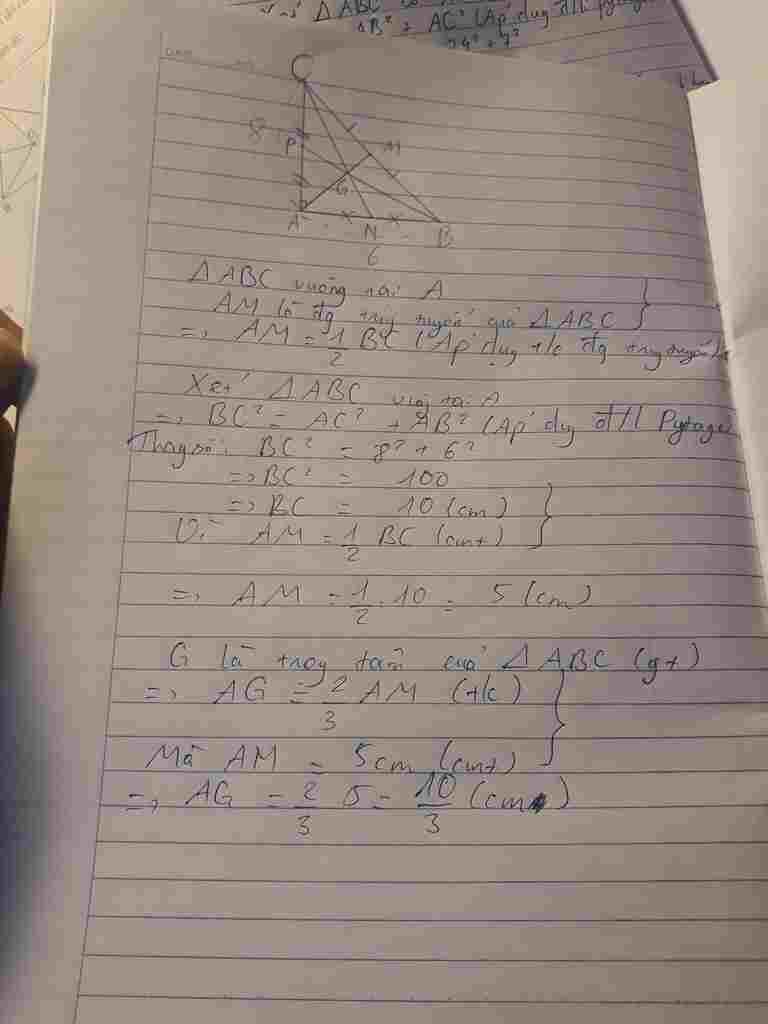 Δ ABC
AB² + AC² (Áp dụng đ/l pytago
24² + 7²
C
8
P
M
G
A
N
B
6
Δ ABC vuông tại A
AM là đg trung tuyến của Δ ABC
=> AM = 1/2 BC (Áp dụng t/c đg trung tuyến
Xét Δ ABC vuông tại A
=> BC² = AC² + AB² (Áp dụng đ/l Pytago
Thay số: BC² = 8² + 6²
=> BC² = 100
=> BC = 10 (cm)
Vì AM = 1/2 BC (cmt)
=> AM = 1/2 . 10 = 5 (cm)
G là trọng tâm của Δ ABC (gt)
=> AG = 2/3 AM (t/c)
Mà AM = 5cm (cmt)
=> AG = 2/3 5 = 10/3 (cm)